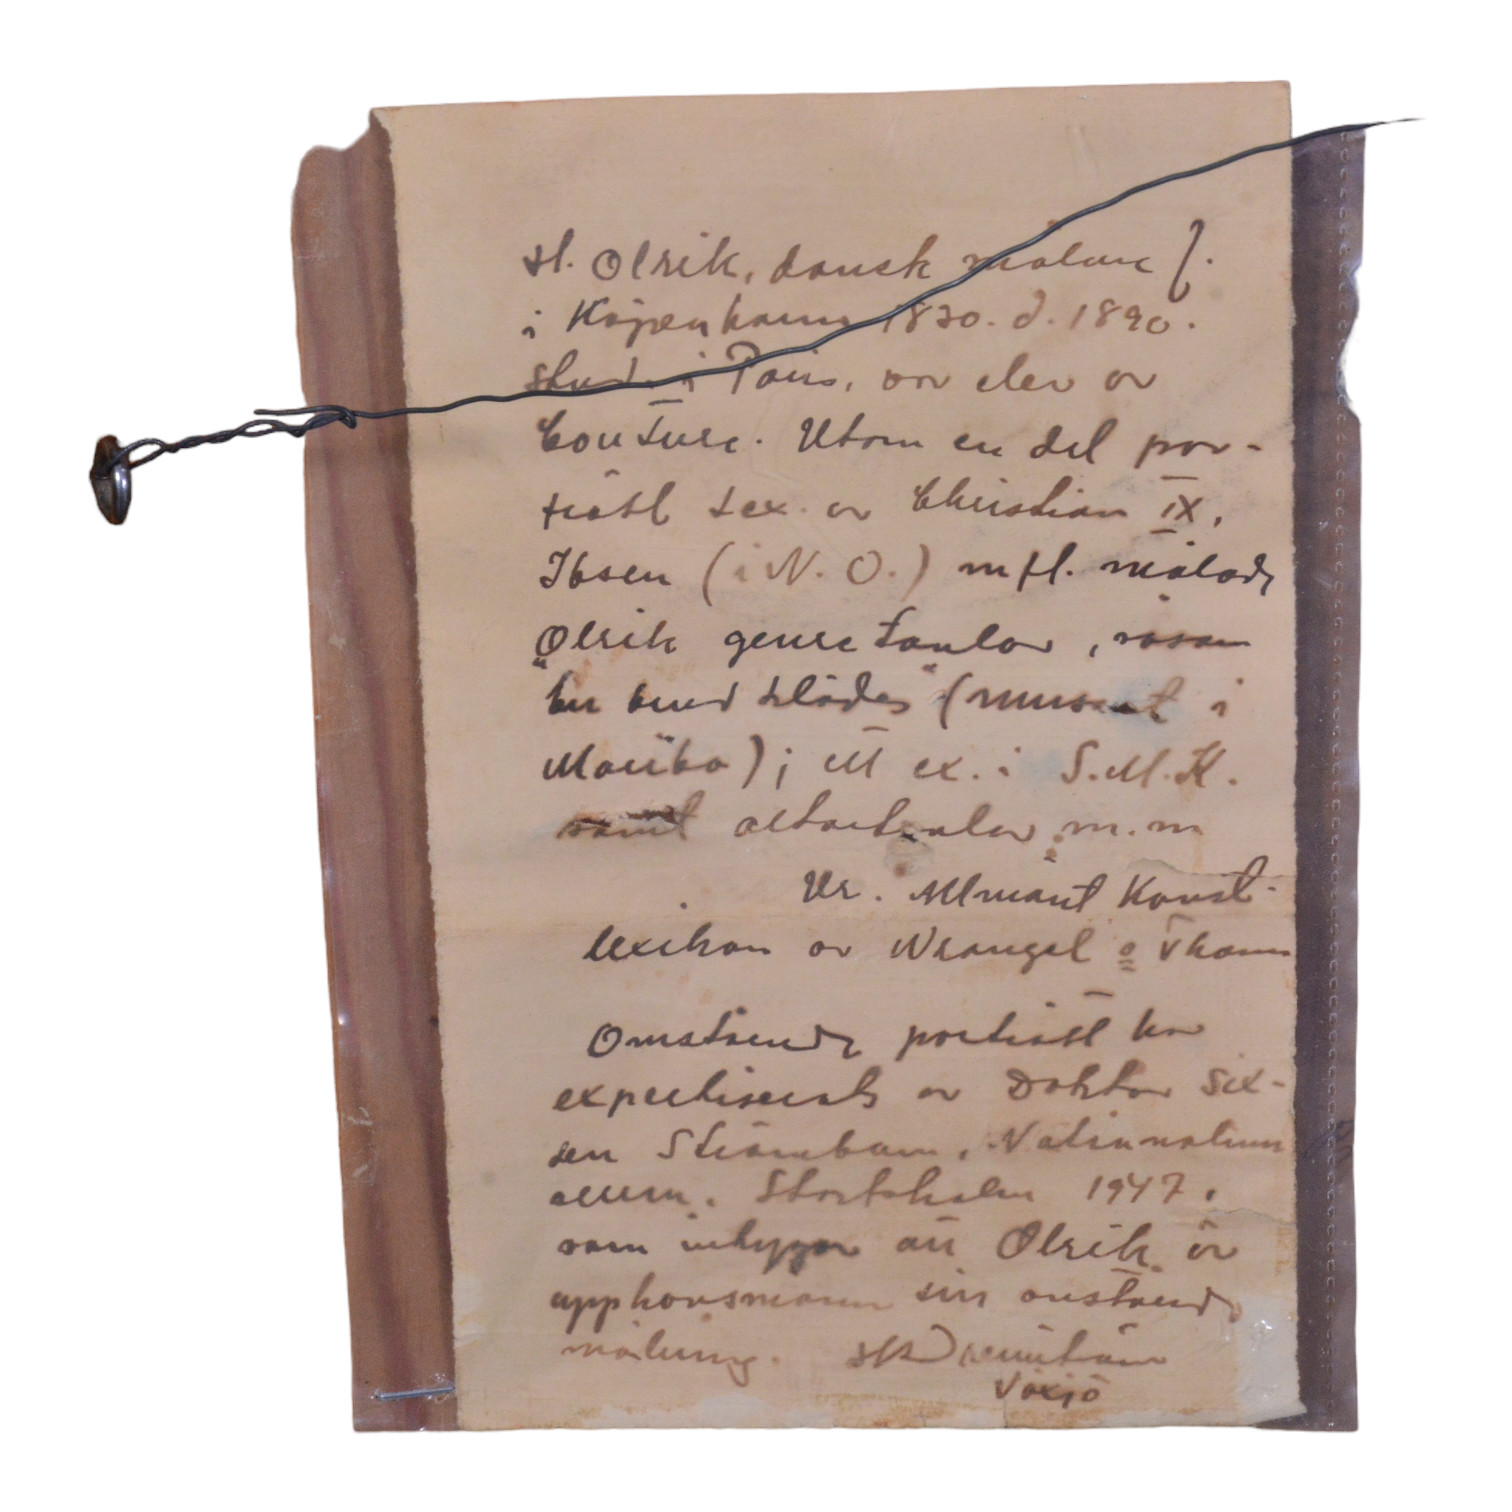 H. Olrik, dansk målare f.
i Köpenhamn 1830. d. 1890.
stud. i Paris, var elev av
Couture. Utom en del por-
trätt t.ex. av Christian IX,
Ibsen (i N. O.) m fl. målade
Olrik genretavlor, såsom
"En brud klädes" (museet i
Maribo); ett ex. i S.M.K.
samt altartavlor m.m
Ur. Allmänt Konst-
lexikon av Wrangel o
expertiserats av Doktor Six-
ten Strömbom, Nationalmu-
seum. Stockholm 1947,
som intygar att Olrik är
upphovsmann till
målning.
Växjö